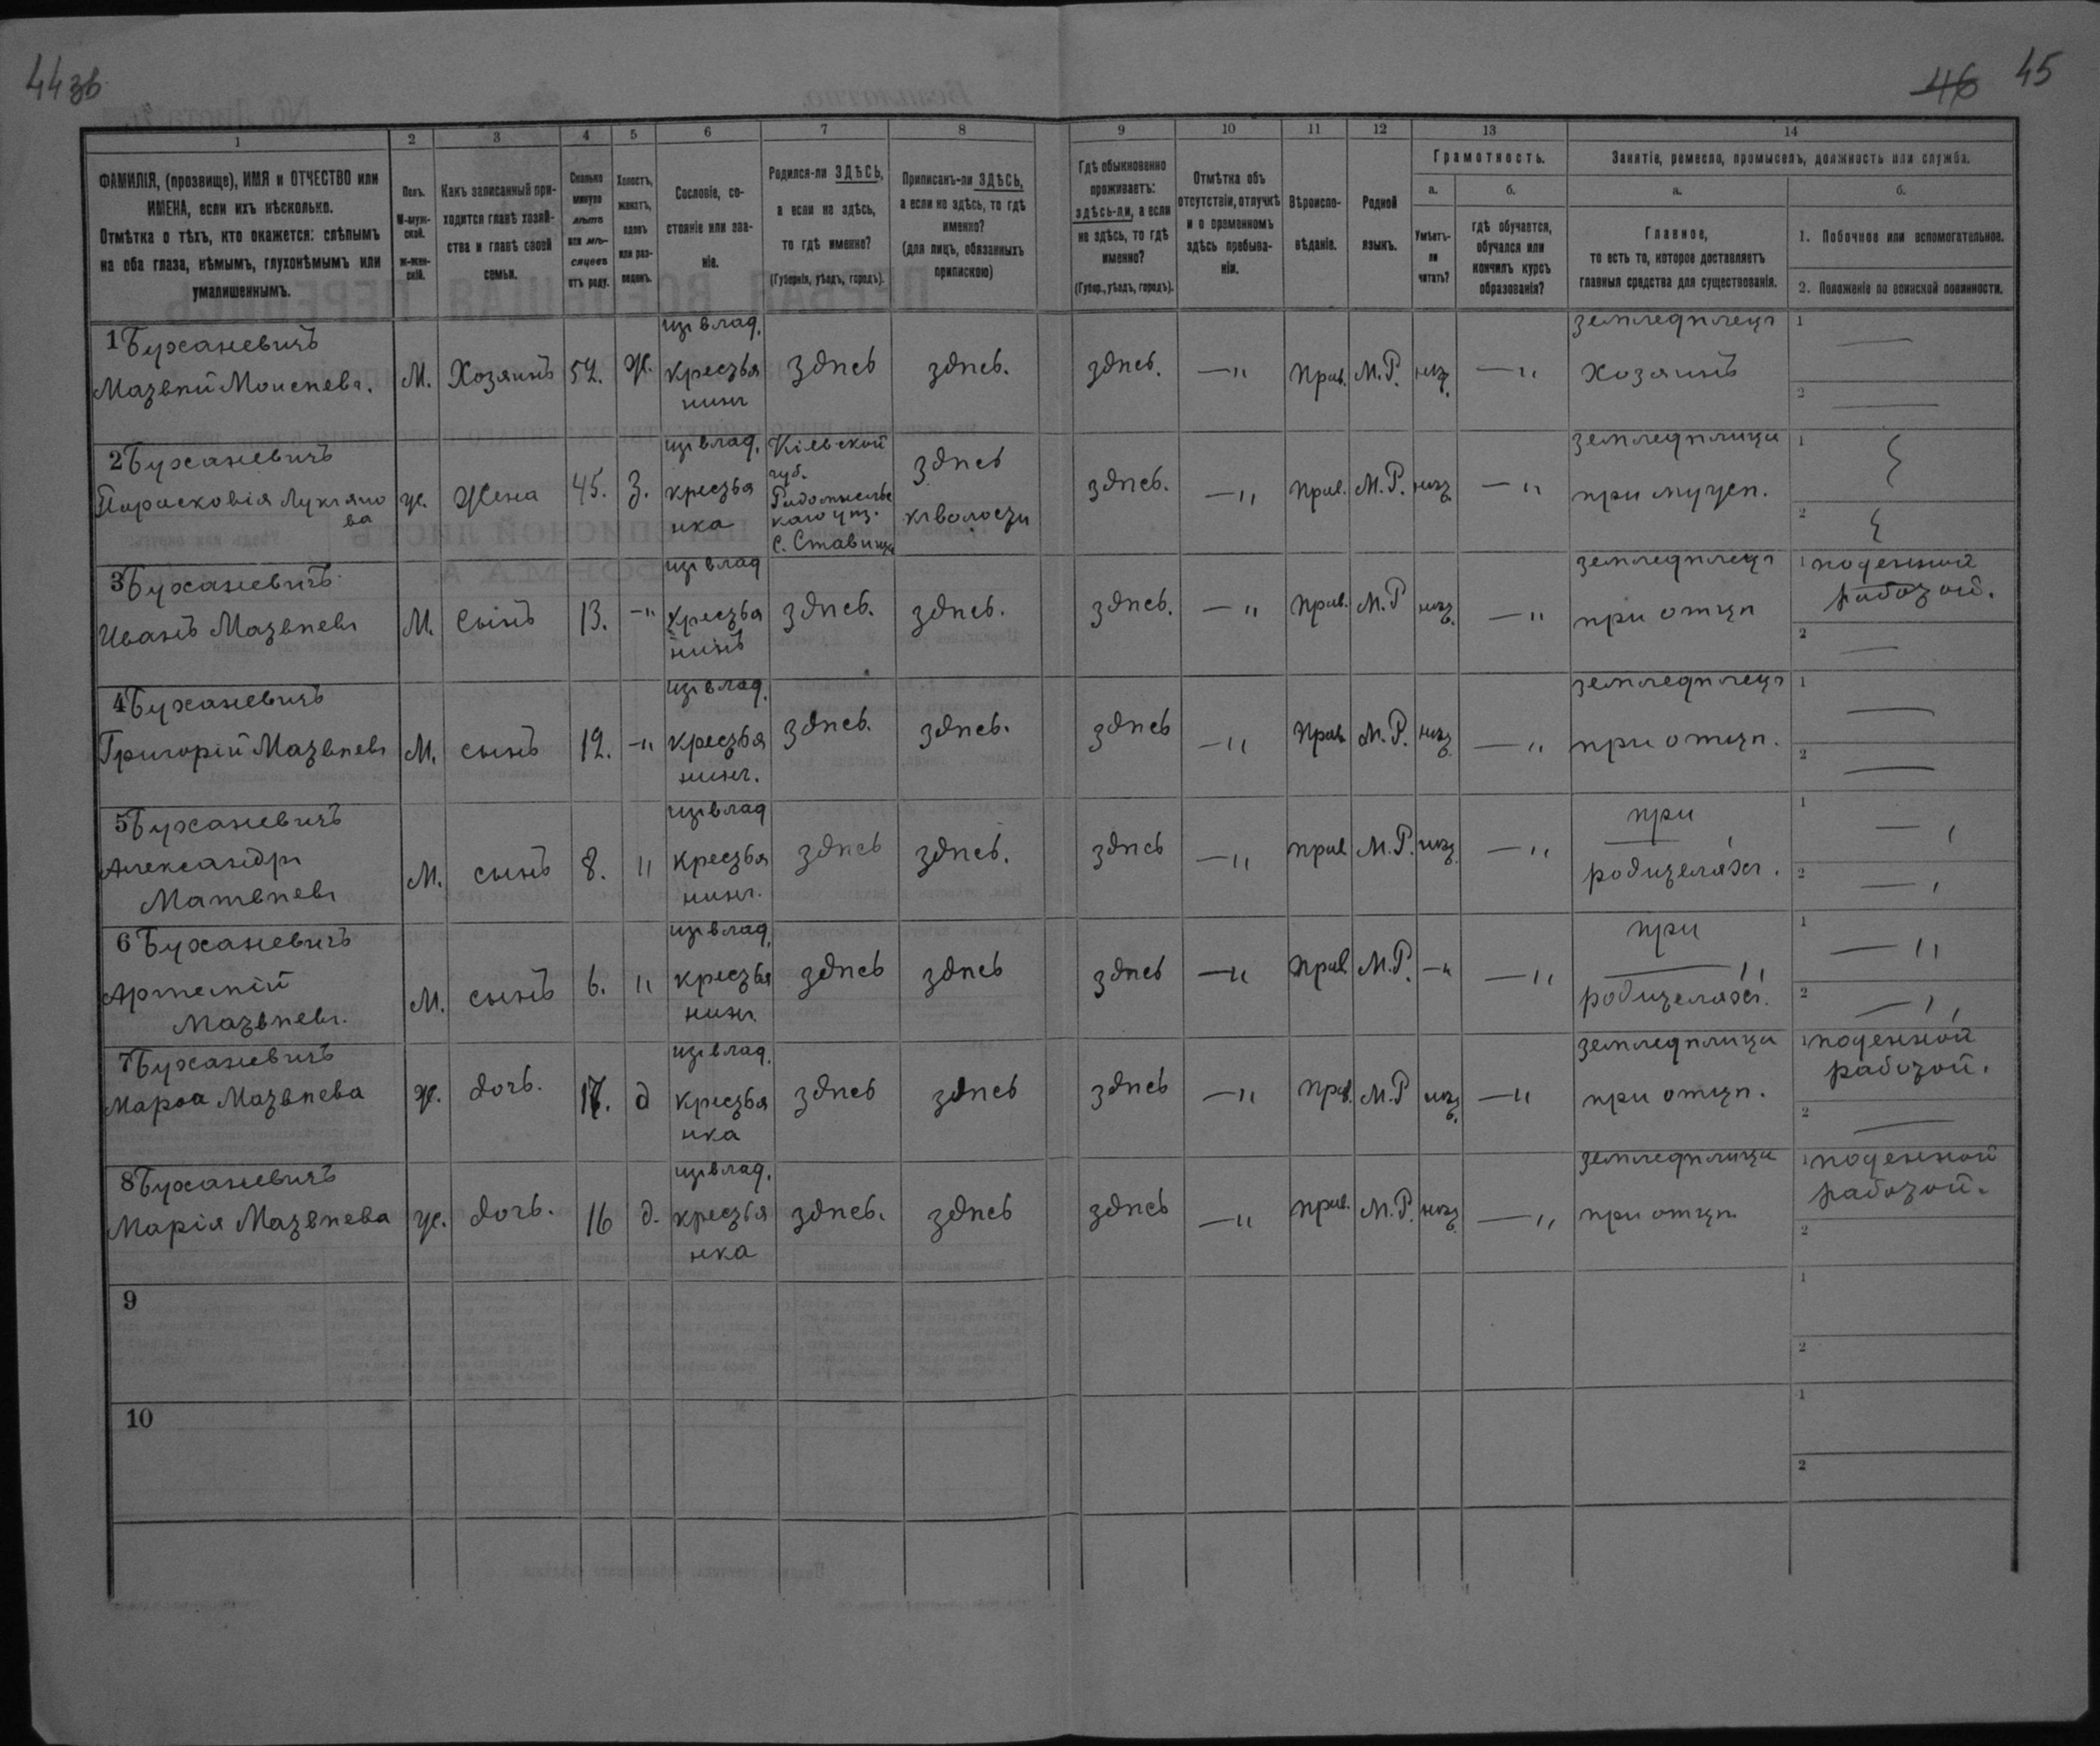 44 зв.
46 45
1
2
3
4
5
6
7
8
9
10
11
12
13
14
ФАМИЛІЯ, (прозвище), ИМЯ и ОТЧЕСТВО или
ИМЕНА, если ихъ нѣсколько.
Отмѣтка о тѣхъ, кто окажется: слѣпымъ
на оба глаза, нѣмымъ, глухонѣмымъ или
умалишеннымъ.
Полъ.
М-муж-
ской.
ж-жен-
скій.
Какъ записанный при-
ходится главѣ хозяй-
ства и главѣ своей
семьи.
Сколько
минуло
лѣтъ
или мѣ-
сяцевъ
отъ роду.
Холостъ,
женатъ,
вдовъ
или раз-
веденъ.
Сословіе, со-
стояніе или зва-
ніе.
Родился-ли ЗДѢСЬ,
а если не здѣсь,
то гдѣ именно?
(Губернія, уѣздъ, городъ).
Приписанъ-ли ЗДѢСЬ,
а если не здѣсь, то гдѣ
именно?
(для лицъ, обязанныхъ
припискою)
Гдѣ обыкновенно
проживаетъ:
здѣсь-ли, а если
не здѣсь, то гдѣ
именно?
(Губер., уѣздъ, городъ).
Отмѣтка объ
отсутствіи, отлучкѣ
и о временномъ
здѣсь пребыва-
ніи.
Вѣроиспо-
вѣданіе.
Родной
языкъ.
Грамотность.
а.
Умѣетъ-
ли
читать?
б.
гдѣ обучается,
обучался или
кончилъ курсъ
образованія?
Занятіе, ремесло, промыселъ, должность или служба.
а.
Главное,
то есть то, которое доставляетъ
главныя средства для существованія.
б.
1. Побочное или вспомогательное.
2. Положеніе по воинской повинности.
1 Буханевичъ
Матвѣй Моисѣевъ.
М.
Хозяинъ
52.
Ж.
изъ влад.
крестья
нинъ
Здѣсь
здѣсь.
здѣсь.
—"
Прав.
М.Р.
нѣт.
—"
земледѣлецъ
хозяинъ
1
2
2 Буханевичъ
Парасковія Лукьяно
ва
ж.
Жена
45.
З.
изъ влад.
крестья
нка
Кіевской
губ.
Радомысльс
каго уѣз.
с. Ставище
здѣсь
къ волости
здѣсь.
—"
прав.
М.Р.
нѣт.
—"
земледѣлица
при мужѣ.
1
2
3 Буханевичъ
Иванъ Матвѣевъ
М.
Сынъ
13.
—"
изъ влад
крестья
нинъ
здѣсь.
здѣсь.
здѣсь.
—"
прав.
М.Р
нѣт.
—"
земледѣлецъ
при отцѣ
1 поденной
работой.
2
4 Буханевичъ
Григорій Матвѣевъ
М.
сынъ
12.
—"
изъ влад.
крестья
нинъ.
здѣсь.
здѣсь.
здѣсь
—"
Прав
М.Р.
нѣт.
—"
земледѣлецъ
при отцѣ.
1
2
5 Буханевичъ
Александръ
Матвѣевъ
М.
сынъ
8.
"
изъ влад
крестья
нинъ.
здѣсь
здѣсь.
здѣсь
—"
прав
М.Р.
нѣт.
—"
при
родителяхъ.
1
2
6 Буханевичъ
Артемій
Матвѣевъ.
М.
сынъ
6.
"
изъ влад.
крестья
нинъ
здѣсь
здѣсь
здѣсь
—"
прав
М.Р.
—"
—"
при
родителяхъ.
1 —"
2 —"
7 Буханевичъ
Марѳа Матвѣева
ж.
дочь.
17.
д
изъ влад.
крестья
нка
здѣсь
здѣсь
здѣсь
—"
Прав.
М.Р
нѣт.
—"
земледѣлица
при отцѣ.
1 поденной
работой.
2
8 Буханевичъ
Марія Матвѣева
ж.
дочь.
16
д.
изъ влад.
крестья
нка
здѣсь.
здѣсь
здѣсь
—"
прав.
М.Р.
нѣт.
—"
земледѣлица
при отцѣ.
1 поденной
работой.
2
9
1
2
10
1
2